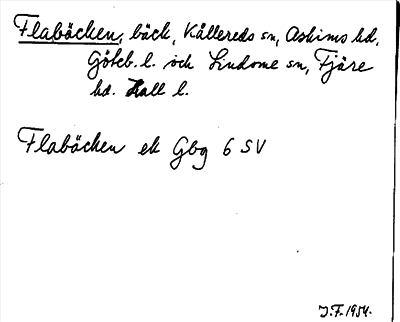 Flabäcken, bäck, Kållereds sn, Askims hd,
Göteb. l. och Lindome sn, Fjäre
hd. Hall l.
Flabäcken ek Gbg 6 SV
J.F. 1954.